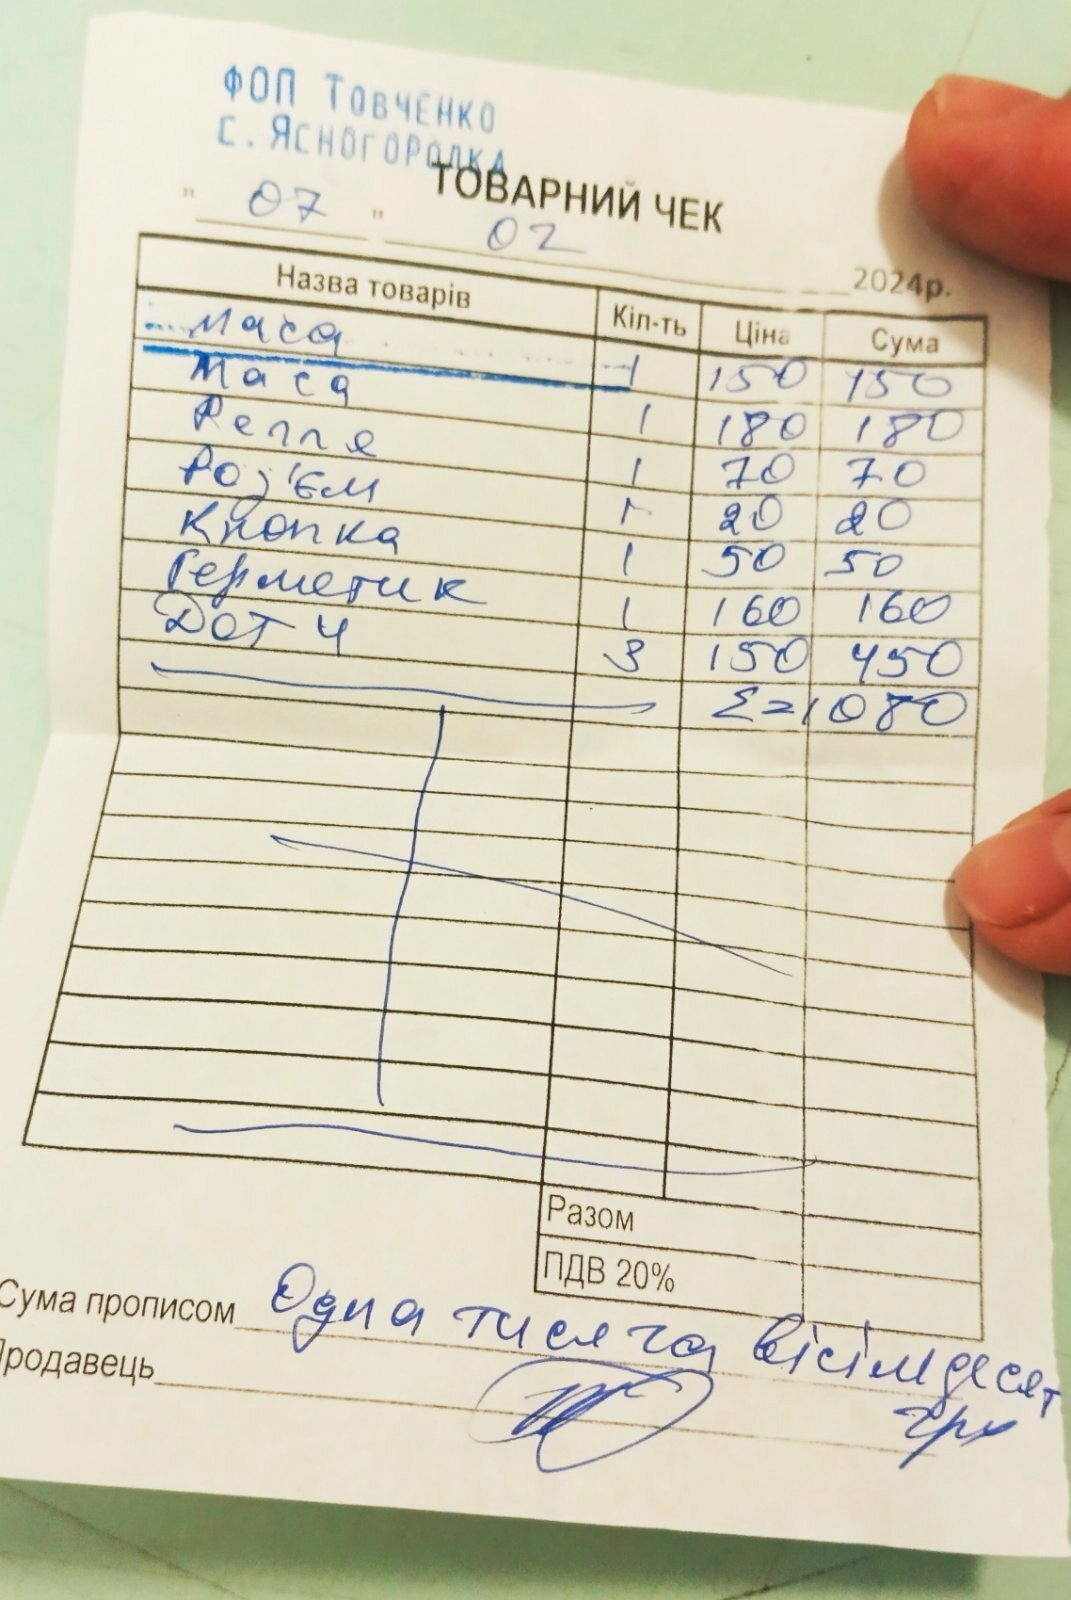 ФОП ТОВЧЕНКО
С. ЯСНОГОРОДКА
ТОВАРНИЙ ЧЕК
" 07 " 02 2024р.
Назва товарів Кіл-ть Ціна Сума
Маса 1 150 150
Маса 1 180 180
Релля 1 70 70
Роз'єм 1 20 20
Кнопка 1 50 50
Герметик 1 160 160
DOT 4 3 150 450
Σ=1080
Разом
ПДВ 20%
Сума прописом Одна тисяча вісімдесят
грн
Продавець